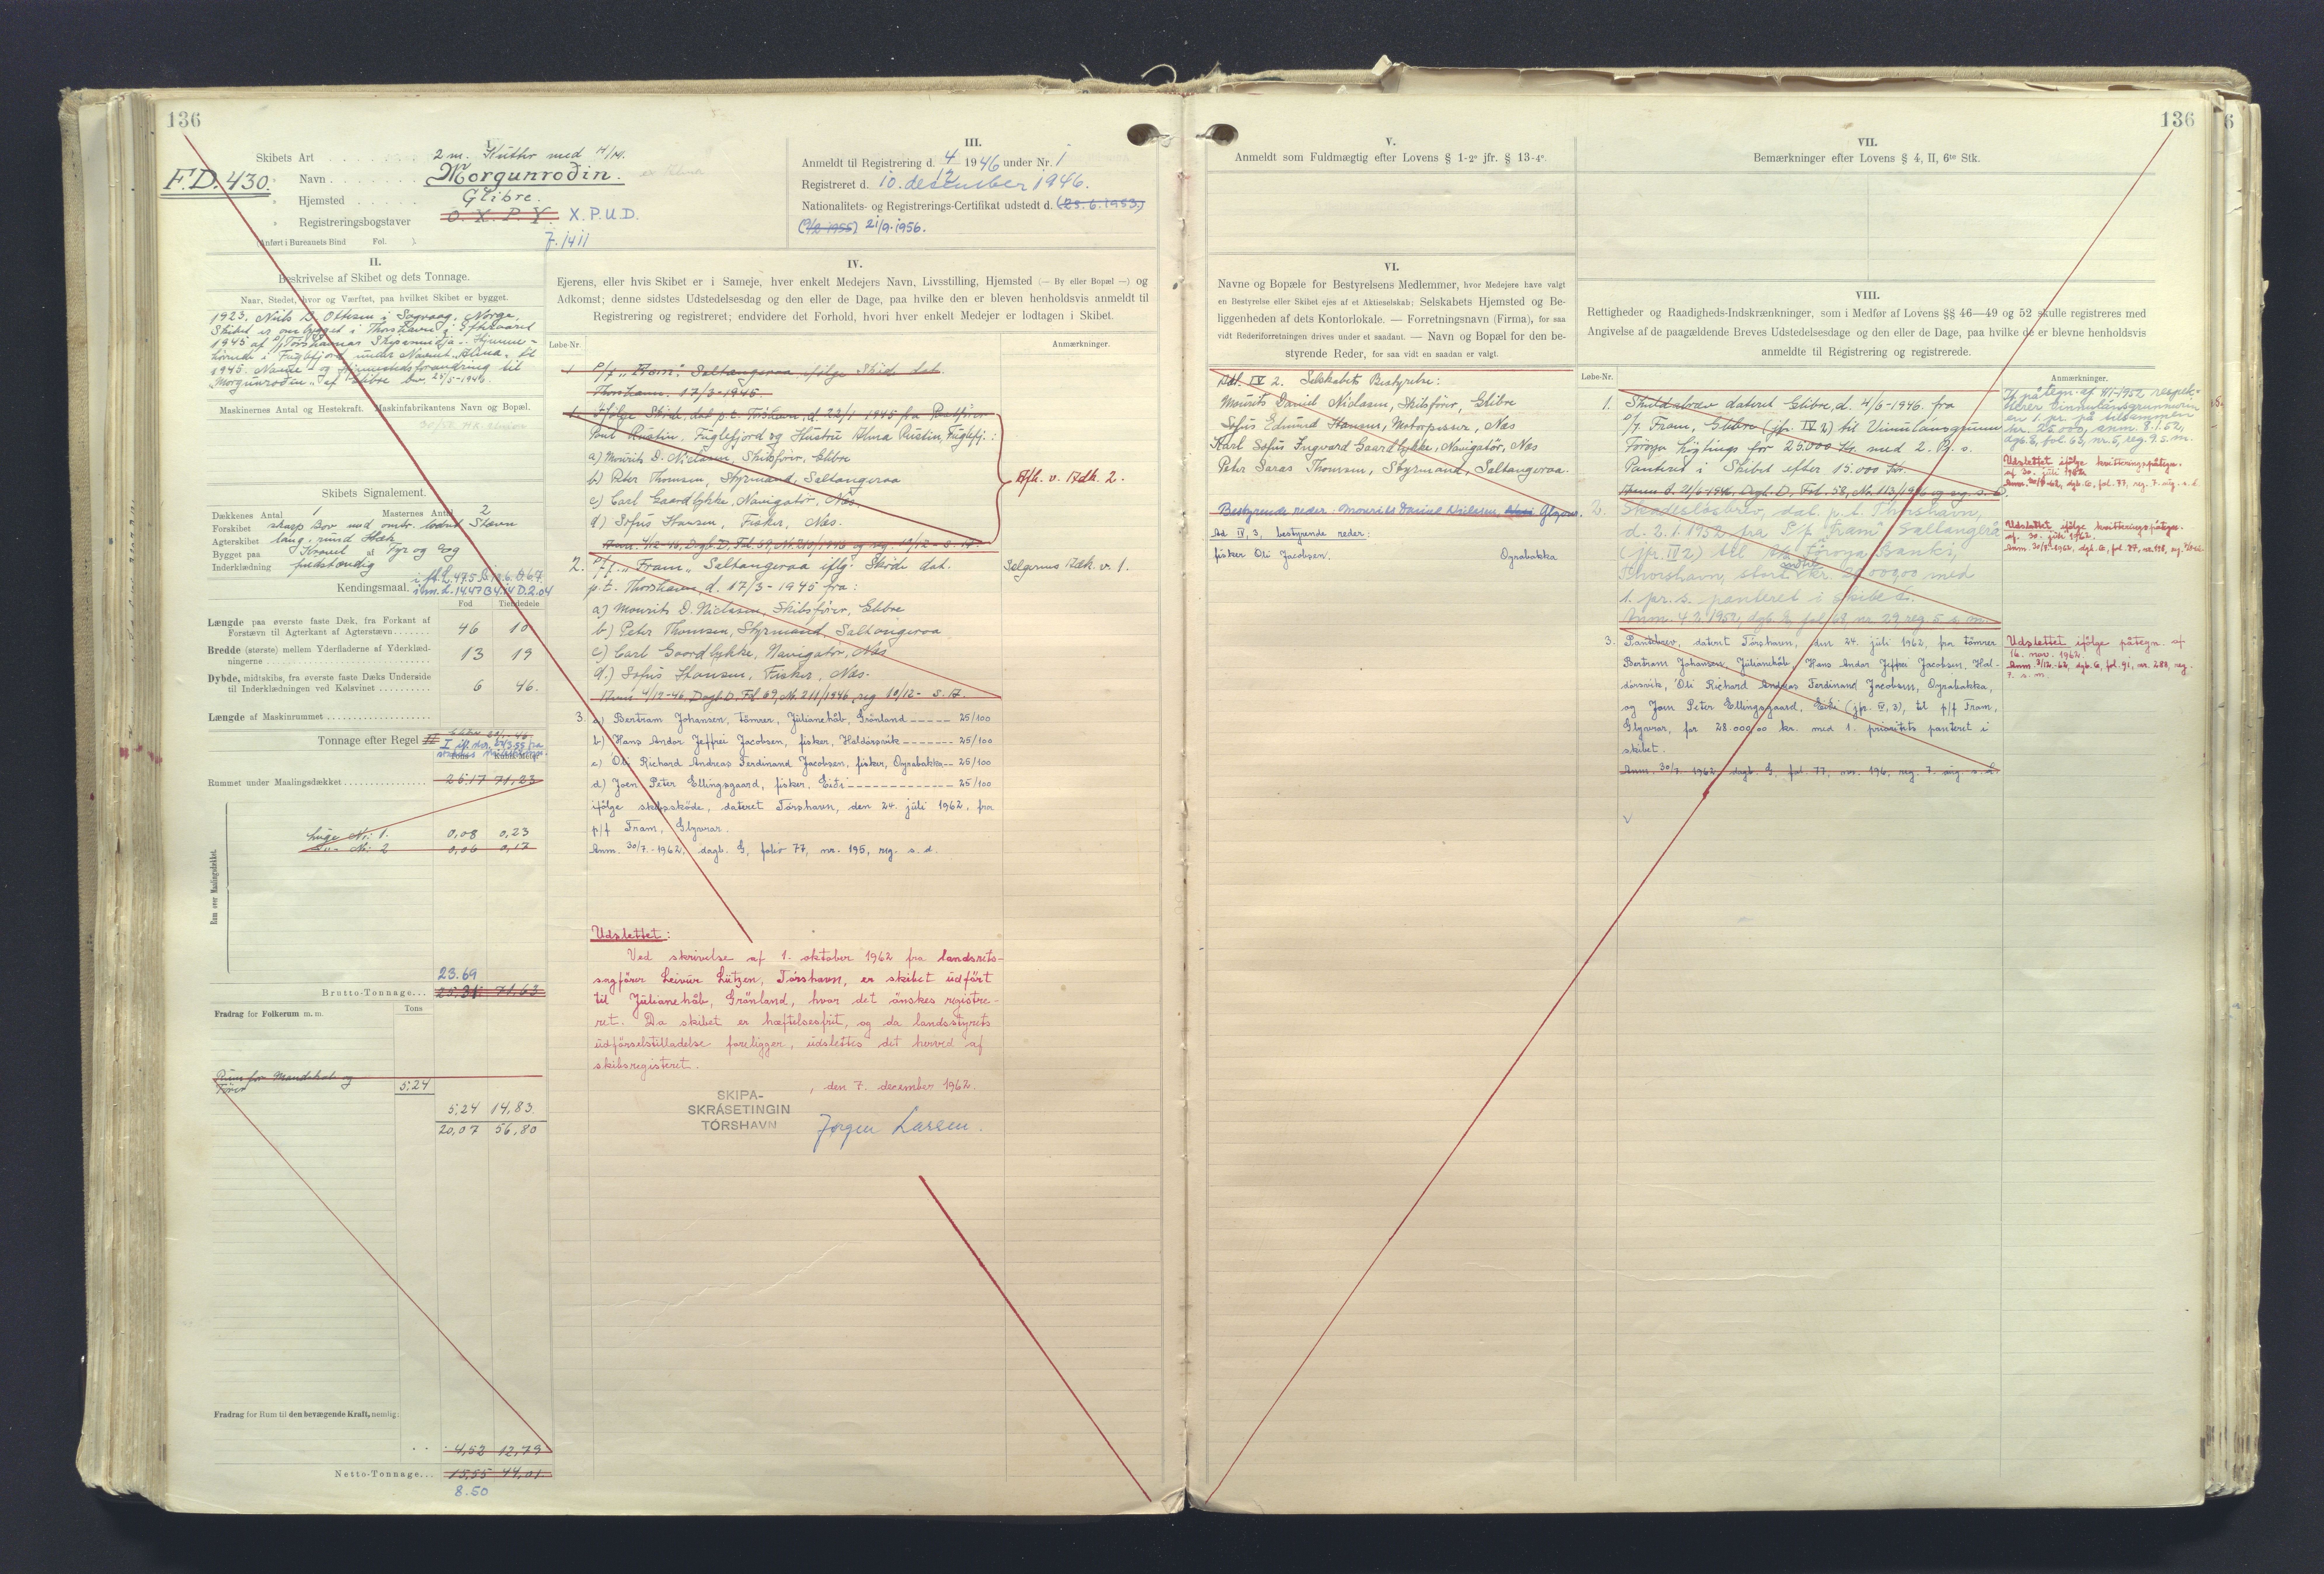 136
I.
Skibets Art 2 m. Kutter med H/M.
F.D. 430.
Navn Morgunroðin.
Hjemsted Glibre.
Registreringsbogstaver O. X. P. Y. X.P.U.D.
(Anført i Bureauets Bind Fol. ).
II.
Beskrivelse af Skibet og dets Tonnage.
Naar, Stedet, hvor og Værftet, paa hvilket Skibet er bygget.
1923. Niels D. Ottesen i Sagvaag, Norge.
Skibet er ombygget i Thorshavn i Efteraaret
1945 af P/f Tórshavnar Skipasmiðja. - Hjemme-
hørende i Fuglefjord under Navnet "Alma" til
1945. Navne- og Hjemstedsforandring til
"Morgunroðin" af Glibre
Maskinernes Antal og Hestekraft. Maskinfabrikantens Navn og Bopæl.
Skibets Signalement.
Dækkenes Antal 1 Masternes Antal 2
Forskibet skarp Bov med ombr. lodret Stævn
Agterskibet lang, rund Hæk
Bygget paa Kravel af Fyr og Eg
Inderklædning fuldstændig
Kendingsmaal.
Fod Tiendedele
Længde paa øverste faste Dæk, fra Forkant af
Forstævn til Agterkant af Agterstævn 46 10
Bredde (største) mellem Yderfladerne af Yderklæd-
ningerne 13 19
Dybde, midtskibs, fra øverste faste Dæks Underside
til Inderklædningen ved Kølsvinet 6 46.
Længde af Maskinrummet
Tonnage efter Regel
Rummet under Maalingsdækket 25,17 71,23
Rum over Maalingsdækket.
Luge Nr. 1. 0,08 0,23
- " - Nr. 2 0,06 0,17
23.69
Brutto-Tonnage 25,31 71,63
Fradrag for Folkerum m. m.
Tons
Rum for Mandskab og
Fører 5,24
5,24 14,83
20,07 56,80
Fradrag for Rum til den bevægende Kraft, nemlig:
4,52 12,79
Netto-Tonnage 15,55 44,01
8.50
III.
Anmeldt til Registrering d. 4/12 1946 under Nr. 1
Registreret d. 10. desember 1946.
Nationalitets- og Registrerings-Certifikat udstedt d. (25.6.1953.)
21/9. 1956.
IV.
Ejerens, eller hvis Skibet er i Sameje, hver enkelt Medejers Navn, Livsstilling, Hjemsted (— By eller Bopæl —) og
Adkomst; denne sidstes Udstedelsesdag og den eller de Dage, paa hvilke den er bleven henholdsvis anmeldt til
Registrering og registreret; endvidere det Forhold, hvori hver enkelt Medejer er lodtagen i Skibet.
Løbe-Nr.
Anmærkninger.
1 P/f "Fram", Saltangeraa ifølge Skøde dat.
Thorshavn. 17/3-1945.
1. Ifølge Skøde dat. p.t. Tórshavn, d. 22/1 1945 fra
Poul Rustin, Fuglefjord og Hustru Alma Rustin, Fuglefj.:
a) Mourits D. Nielsen, Skibsfører, Glibre
b) Peter Thomsen, Styrmand, Saltangeraa
c) Carl Gaardlykke, Navigatør, Næs.
d) Sofus Hansen, Fisker, Næs.
Afh. v. Adk. 2.
2. P/f. "Fram" Saltangeraa iflg. Skøde dat.
p.t. Thorshavn, d. 17/3-1945 fra:
a) Mourits D. Nielsen, Skibsfører, Glibre
b) Peter Thomsen, Styrmand, Saltangeraa.
c) Carl Gaardlykke, Navigatør, Næs
d.) Sofus Hansen, Fisker, Næs.
Anm. 4/12-46, Dagb. D, Fol. 69, Nr. 211/1946, reg. 10/12- S. A.
Selgernes Adk. v. 1.
3. a) Bertram Johansen, tömrer, Julianehåb, Grönland ----- 25/100
b) Hans Andor Jeffrei Jacobsen, fisker, Haldórsvík ------ 25/100
c) Óli Richard Andreas Ferdinand Jacobsen, fisker, Oyrabakka -- 25/100
d) Joen Peter Ellingsgaard, fisker, Eiði -------------- 25/100
ifölge skibsskøde, dateret Tórshavn, den 24. júli 1962, fra
p/f Fram, Glyvrar.
Anm. 30/7.-1962, dagb. G, folio 77, nr. 195, reg. s. d.
Udslettet:
Ved skrivelse af 1. oktober 1962 fra landsrets-
sagförer Leivur Lützen, Tórshavn, er skibet udfört
til Julianehåb, Grönland, hvor det önskes registre-
ret. Da skibet er hæftelsesfrit, og da landsstyrets
udförselstilladelse foreligger, udslettes det herved af
skibsregisteret.
, den 7. december 1962.
SKIPA-
SKRÁSETINGIN
TÓRSHAVN
Jørgen Larsen.
136
V.
Anmeldt som Fuldmægtig efter Lovens § 1-2° jfr. § 13-4°.
VI.
Navne og Bopæle for Bestyrelsens Medlemmer, hvor Medejere have valgt
en Bestyrelse eller Skibet ejes af et Aktieselskab; Selskabets Hjemsted og Be-
liggenheden af dets Kontorlokale. — Forretningsnavn (Firma), for saa
vidt Rederiforretningen drives under et saadant. — Navn og Bopæl for den be-
styrende Reder, for saa vidt en saadan er valgt.
Adk. IV 2. Selskabets Bestyrelse:
Mourits Daniel Nielsen, Skibsfører, Glibre
Sofus Edmund Hansen, Motorpasser, Næs
Karl Sofus Ingvard Gaardlykke, Navigatør, Næs
Peter Saras Thomsen, Styrmand, Saltangeraa.
Bestyrende reder: Mourits Daniel Nielsen, Glyvrar.
Ad IV, 3, bestyrende reder:
fisker Óli Jacobsen. Oyrabakka
VII.
Bemærkninger efter Lovens § 4, II, 6te Stk.
VIII.
Rettigheder og Raadigheds-Indskrænkninger, som i Medfør af Lovens §§ 46—49 og 52 skulle registreres med
Angivelse af de paagældende Breves Udstedelsesdage og den eller de Dage, paa hvilke de er blevne henholdsvis
anmeldte til Registrering og registrerede.
Løbe-Nr.
Anmærkninger.
1. Skuldabræv dateret Glibre, d. 4/6-1946. fra
P/f Fram, Glibre (jfr. IV 2) til Vinnulánsgrunn
Føroya Løgtings for 25.000 Kr. med 2. Pr. s.
Panteret i Skibet efter 15.000 Kr.
If. påtegn. af 4/1-1952 respek-
terer Vinnulánsgrunnurin
en 1. pr. på tilsammen
kr. 25.000, anm. 8.1.52,
dagb. E, fol. 63, nr. 5, reg. 9. s. m.
Udslettet ifölge kvitteringspåtegn.
af 30. júli 1962.
2. Skadeslösbrev, dat. p.t. Thorshavn,
d. 2.1.1952 fra P/f "Fram" Saltangerá
(jfr. IV 2) til Föroya Banki,
Thorshavn, stort kr. 20000,00 med
1. pr. s. panteret i skibet.
Udslettet ifölge kvitteringspåtegn.
af 30. júli 1962.
3. Pantebrev, dateret Tórshavn, den 24. júli 1962, fra tömrer
Bertram Johansen, Julianehåb, Hans Andor Jeffrei Jacobsen, Hal-
dórsvík, Óli Richard Andreas Ferdinand Jacobsen, Oyrabakka,
og Joen Peter Ellingsgaard, Eiði (jfr. IV, 3), til p/f Fram,
Glyvrar, for 28.000,00 kr. med 1. prioritets panteret i
skibet.
Anm. 30/7 1962, dagb. G, fol. 77, nr. 196, reg. 7. aug. s. å.
Udslettet ifölge påtegn. af
16. nov. 1962.